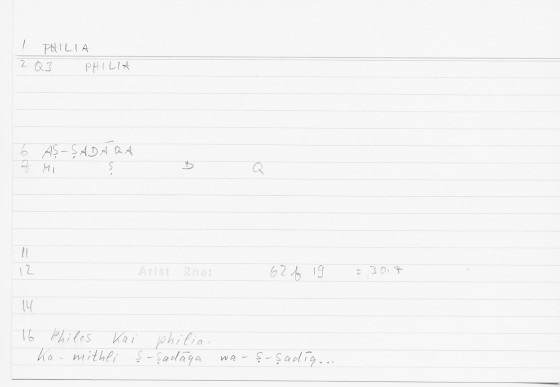 1 PHILIA
2 QI PHILIA
6 AṢ-ṢADĀQA
7 MI Ṣ D Q
11
12 Arist Rhet 62b 19 = 30.7
14
16 Philos kai philia.
Ka-mithli ṣ-ṣadāqa wa-ṣ-ṣadīq...